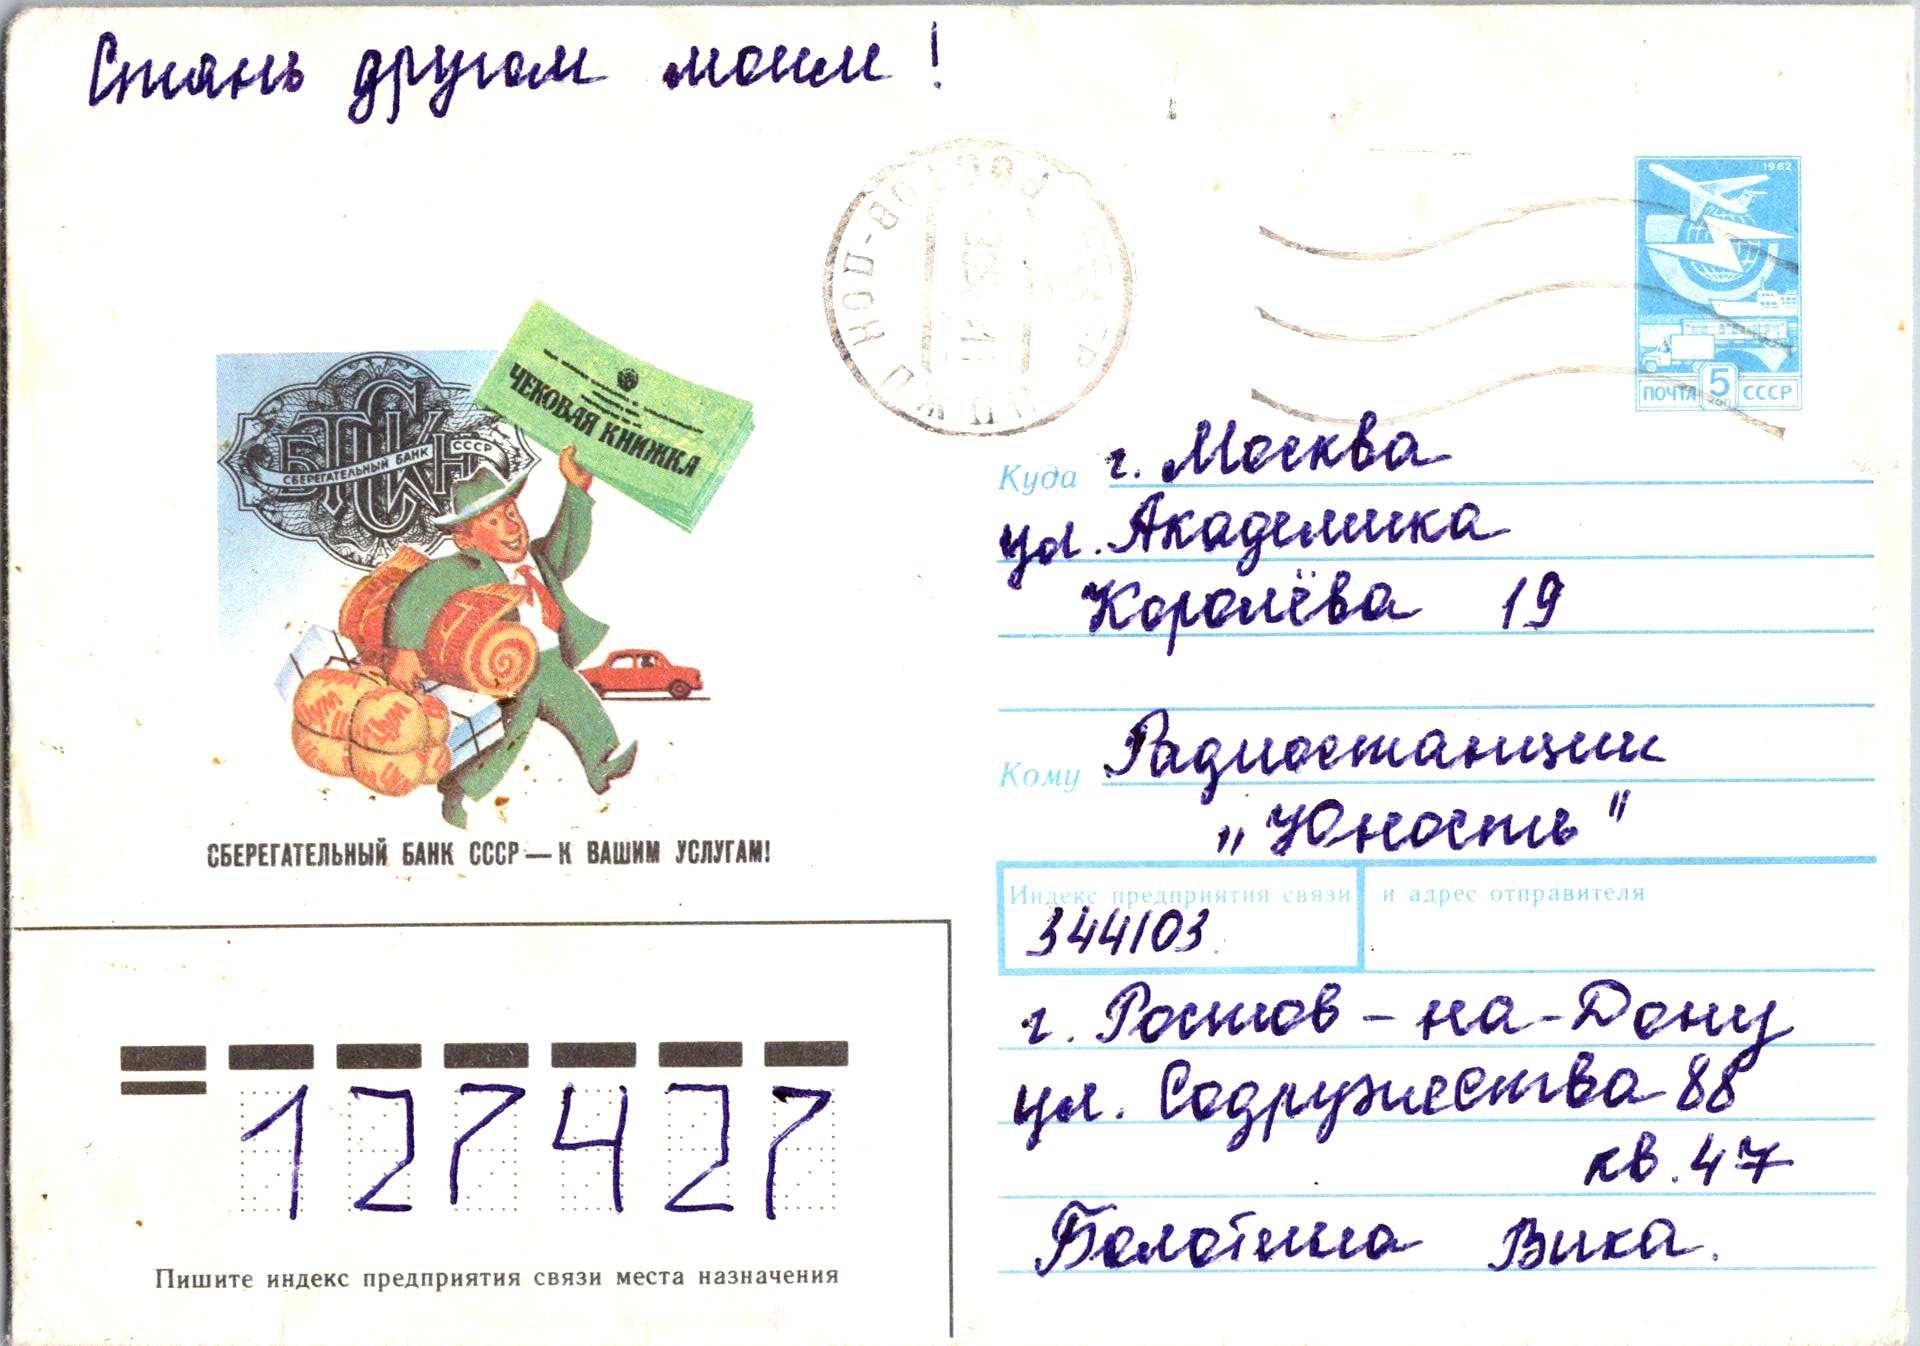 Стань другом моим!
РОСТОВ-ДОН ПЖДП
СССР
1982
ПОЧТА 5 СССР
ЧЕКОВАЯ КНИЖКА
СБЕРЕГАТЕЛЬНЫЙ БАНК СССР
ЦУМ
ЦУМ
СБЕРЕГАТЕЛЬНЫЙ БАНК СССР — К ВАШИМ УСЛУГАМ!
Куда г. Москва
ул. Академика
Королёва 19
Кому Радиостанции
„Юность"
Индекс предприятия связи и адрес отправителя
344103.
г. Ростов-на-Дону
ул. Содружества 88
кв. 47
Болотина Вика.
127427
Пишите индекс предприятия связи места назначения